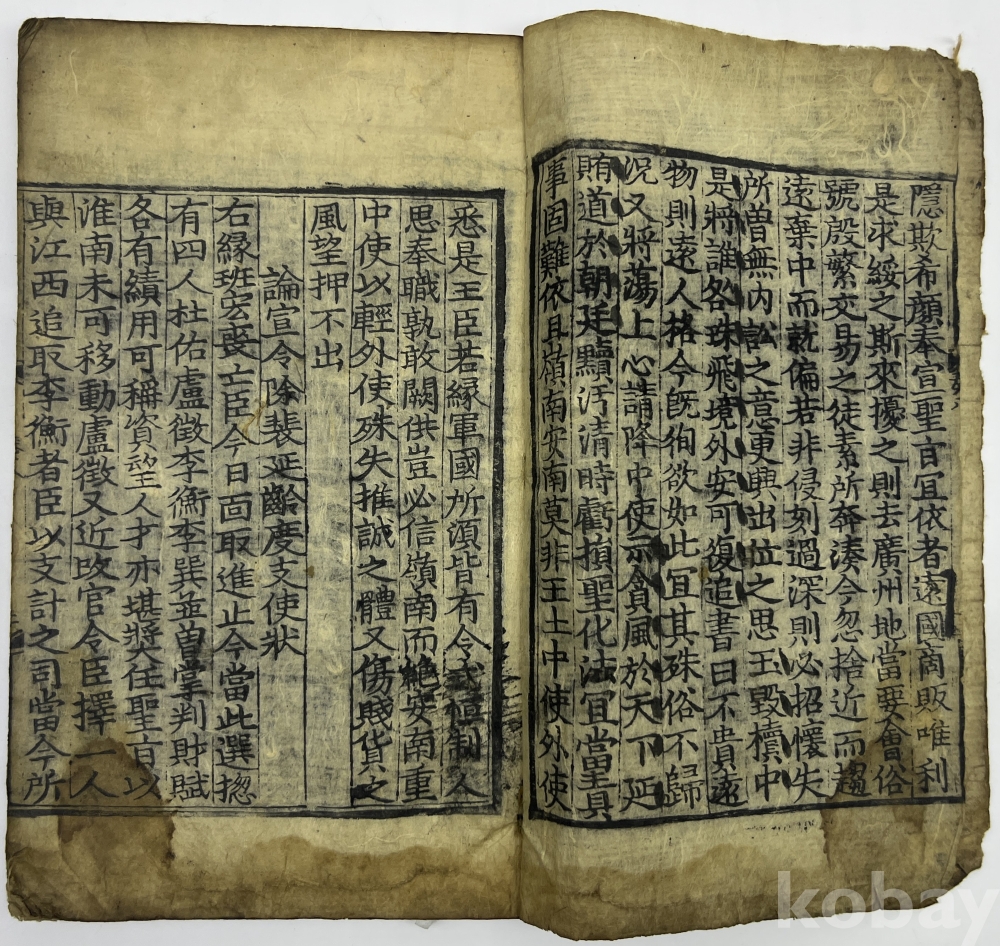 隱欺希顔奉宣聖旨宜依者遠國商販唯利
是求綏之斯來擾之則去廣州地當要會俗
號殷繁交易之徒素所奔湊今忽捨近而趨
遠棄中而就偏若非侵刻過深則必招懷失
所曾無内訟之意更興出位之思玉毀櫝中
是將誰咎珠飛境外安可復追書曰不貴遠
物則遠人格今旣徇欲如此宜其殊俗不歸
況又將蕩上心請降中使示貪風於天下延
賄道於朝廷黷汚清時虧損聖化法宜當皆具
事固難依且嶺南安南莫非王土中使外使
悉是王臣若緣軍國所須皆有令式恒制人
思奉職孰敢闕供豈必信嶺南而絶安南重
中使以輕外使殊失推誠之體又傷賤貨之
風望押不出
論宣令除裴延齡度支使狀
右緣班宏喪亡臣今日面取進止今當此選揔
有四人杜佑盧徵李衡李巽並曽掌判財賦
各有績用可稱資望人才亦堪奬任聖旨以
淮南未可移動盧徵又近改官令臣擇一人
與江西追取李衡者臣以支計之司當今所
kobay